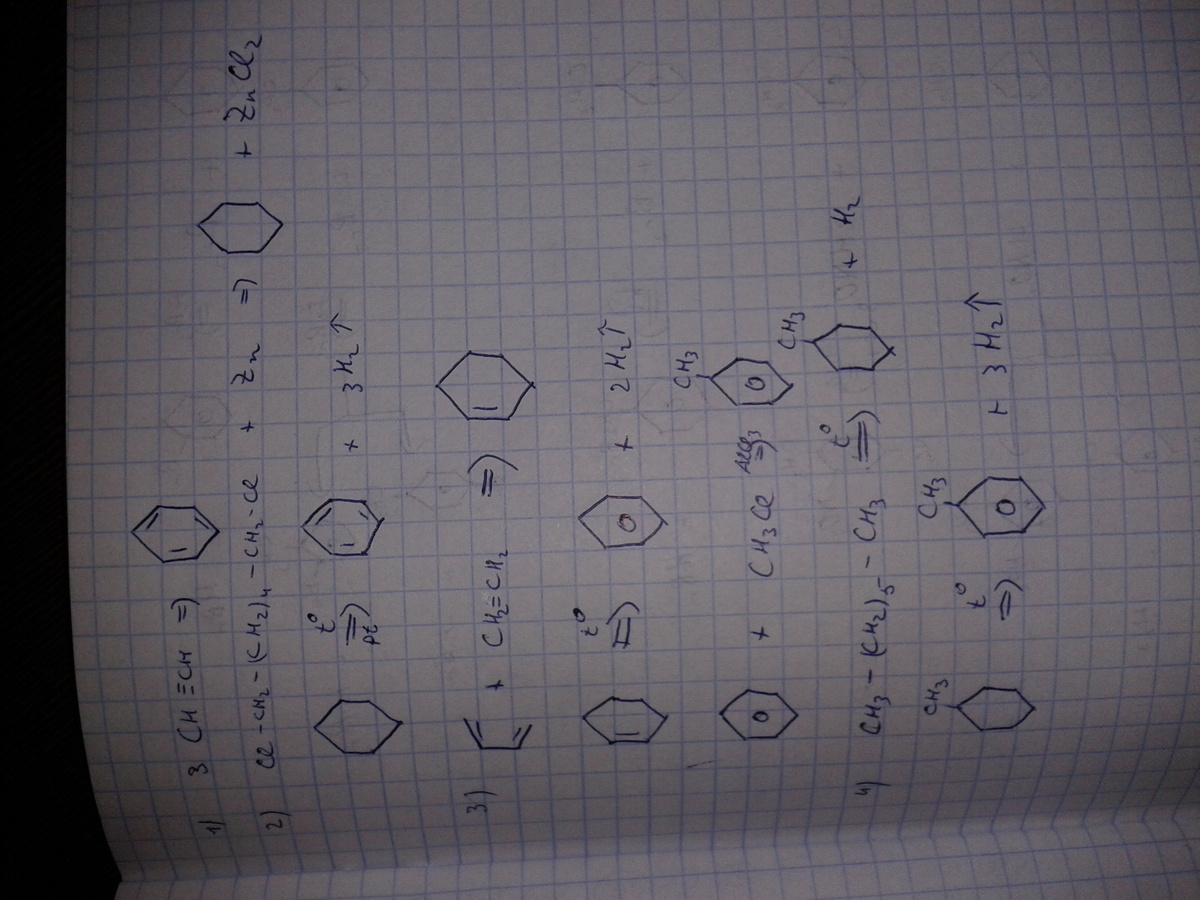 1) 3 CH≡CH ⇒
2) Cl-CH₂-(CH₂)₄-CH₂-Cl + Zn ⇒ + ZnCl₂
t° ⇒ Pt + 3H₂↑
3) + CH₂=CH₂ ⇒
t° ⇒ + 2H₂↑
+ CH₃Cl AlCl₃ ⇒ CH₃
4) CH₃-(CH₂)₅-CH₃ t° ⇒ CH₃ + H₂
CH₃ t° ⇒ CH₃ + 3H₂↑